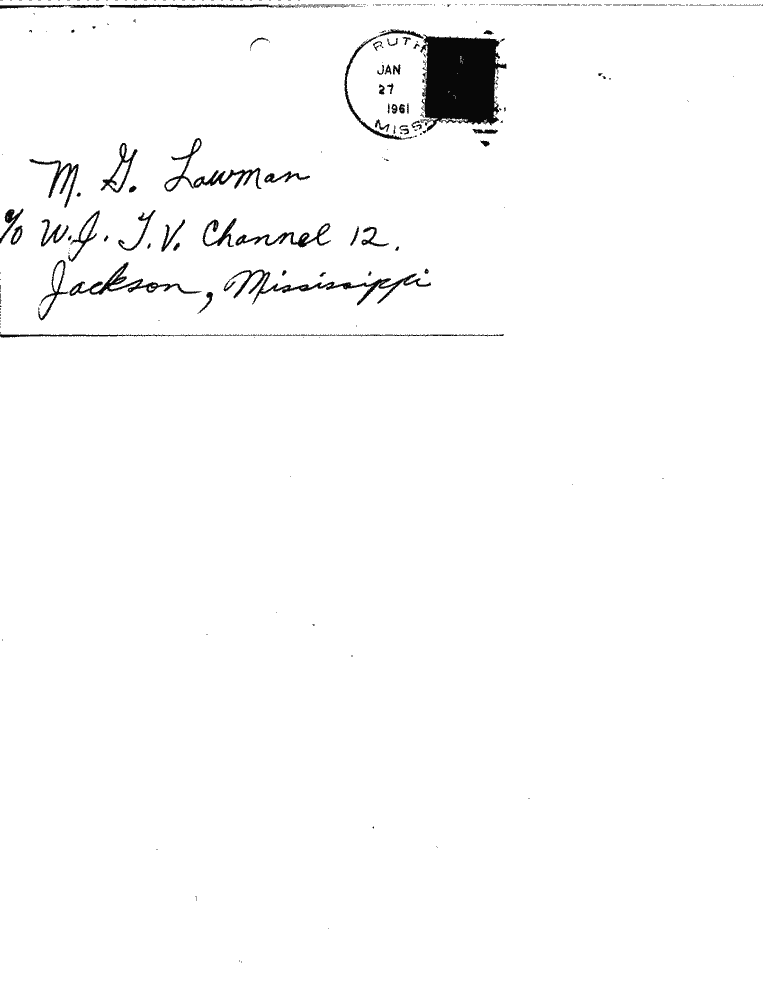 RUTH
JAN
27
1961
MISS.
M. G. Lowman
c/o W.J.T.V. Channel 12.
Jackson, Mississippi